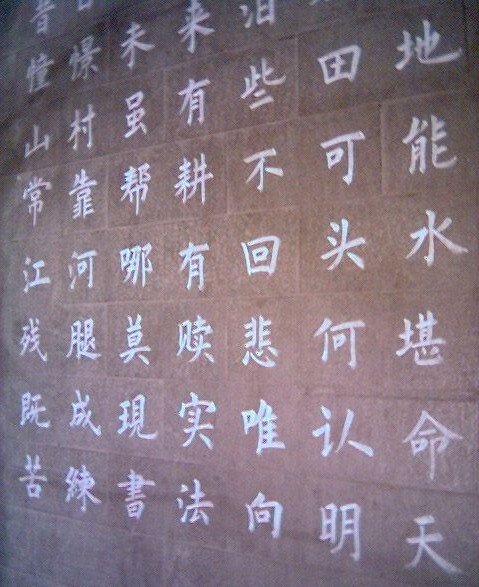 憧憬未来泪
山村虽有些田地
常靠帮耕不可能
江河哪有回头水
残腿莫赎悲何堪
既成現实唯认命
苦練書法向明天